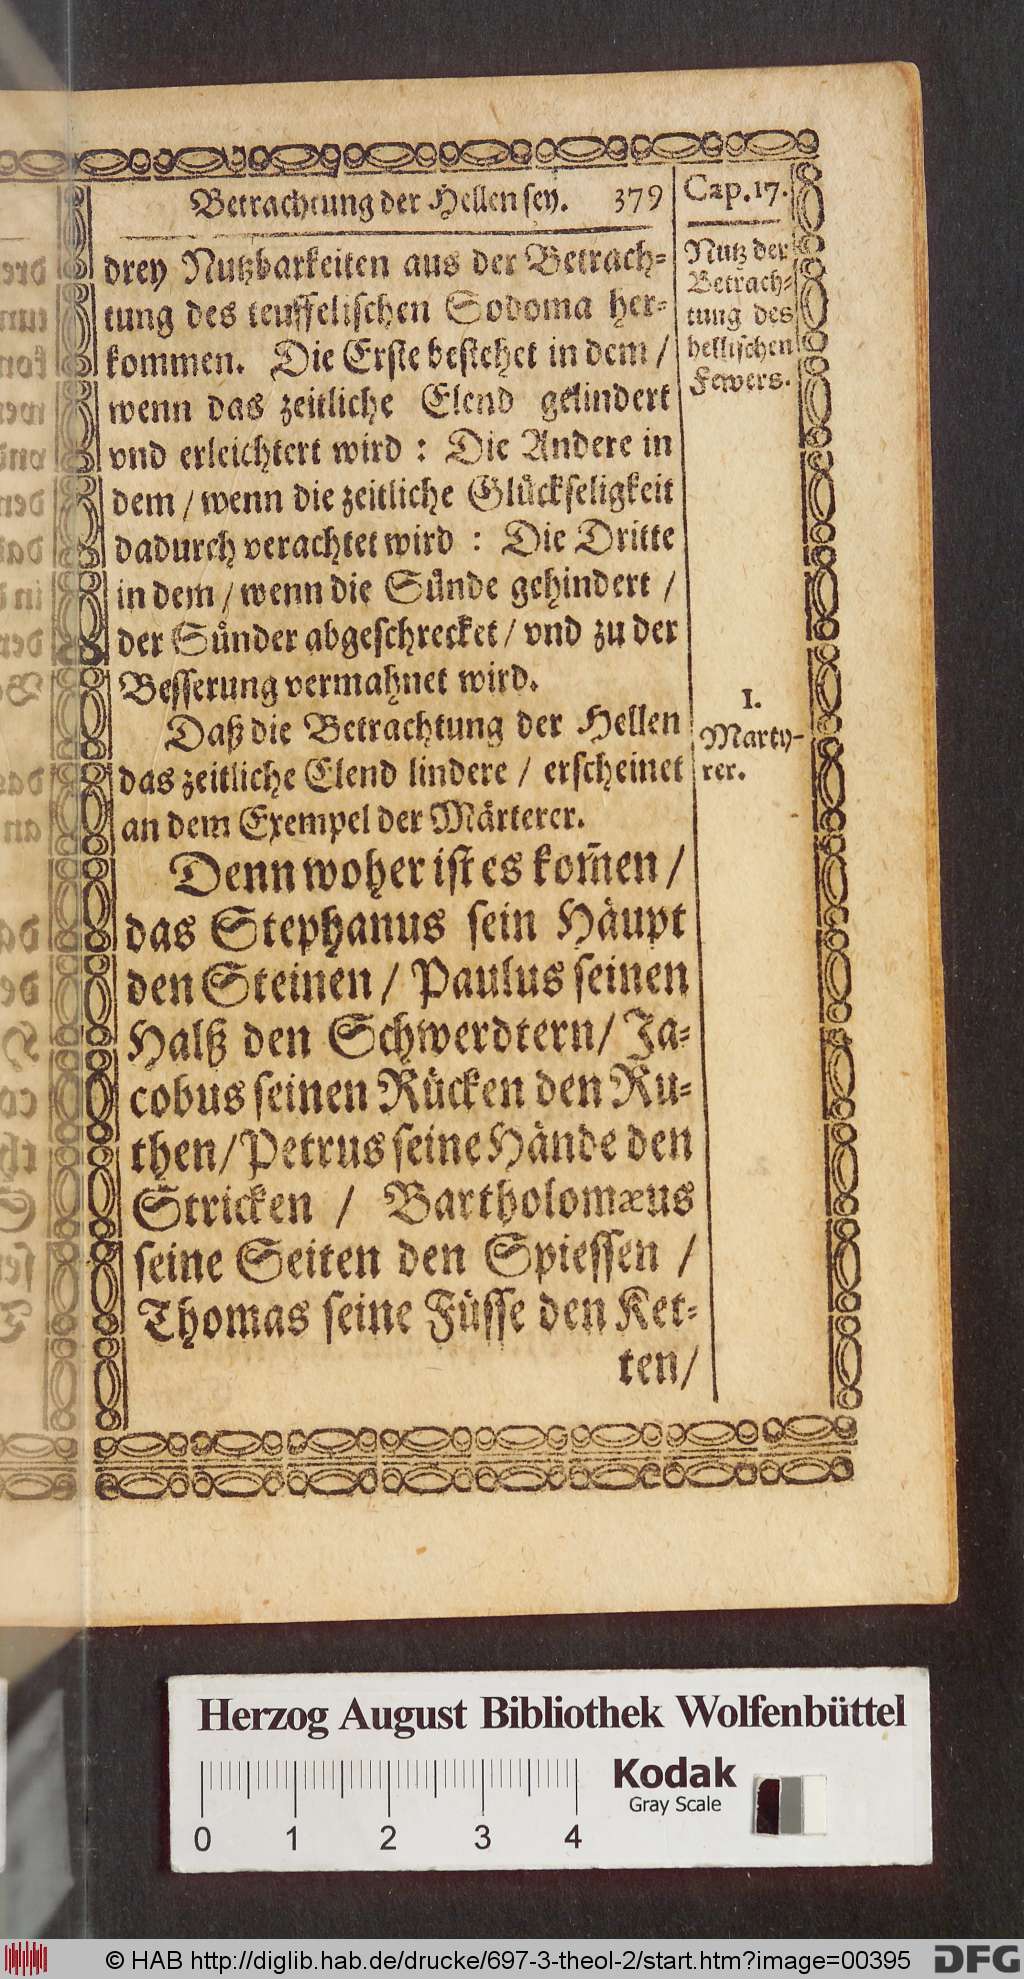 Betrachtung der Hellen sey. 379
Cap. 17.
drey Nutzbarkeiten aus der Betrach-
tung des teuffelischen Sodoma her-
kommen. Die Erste bestehet in dem /
wenn das zeitliche Elend gelindert
vnd erleichtert wird : Die Andere in
dem / wenn die zeitliche Glückseligkeit
dadurch verachtet wird : Die Dritte
in dem / wenn die Sünde gehindert /
der Sünder abgeschrecket / vnd zu der
Besserung vermahnet wird.
Daß die Betrachtung der Hellen
das zeitliche Elend lindere / erscheinet
an dem Exempel der Märterer.
Denn woher ist es kom̃en /
das Stephanus sein Häupt
den Steinen / Paulus seinen
Halß den Schwerdtern / Ja-
cobus seinen Rücken den Ru-
then / Petrus seine Hände den
Stricken / Bartholomæus
seine Seiten den Spiessen /
Thomas seine Füsse den Ket-
ten /
Nutz der
Betrach-
tung des
hellischen
Fewers.
I.
Marty-
rer.
Herzog August Bibliothek Wolfenbüttel
Kodak
Gray Scale
0 1 2 3 4
© HAB http://diglib.hab.de/drucke/697-3-theol-2/start.htm?image=00395
DFG